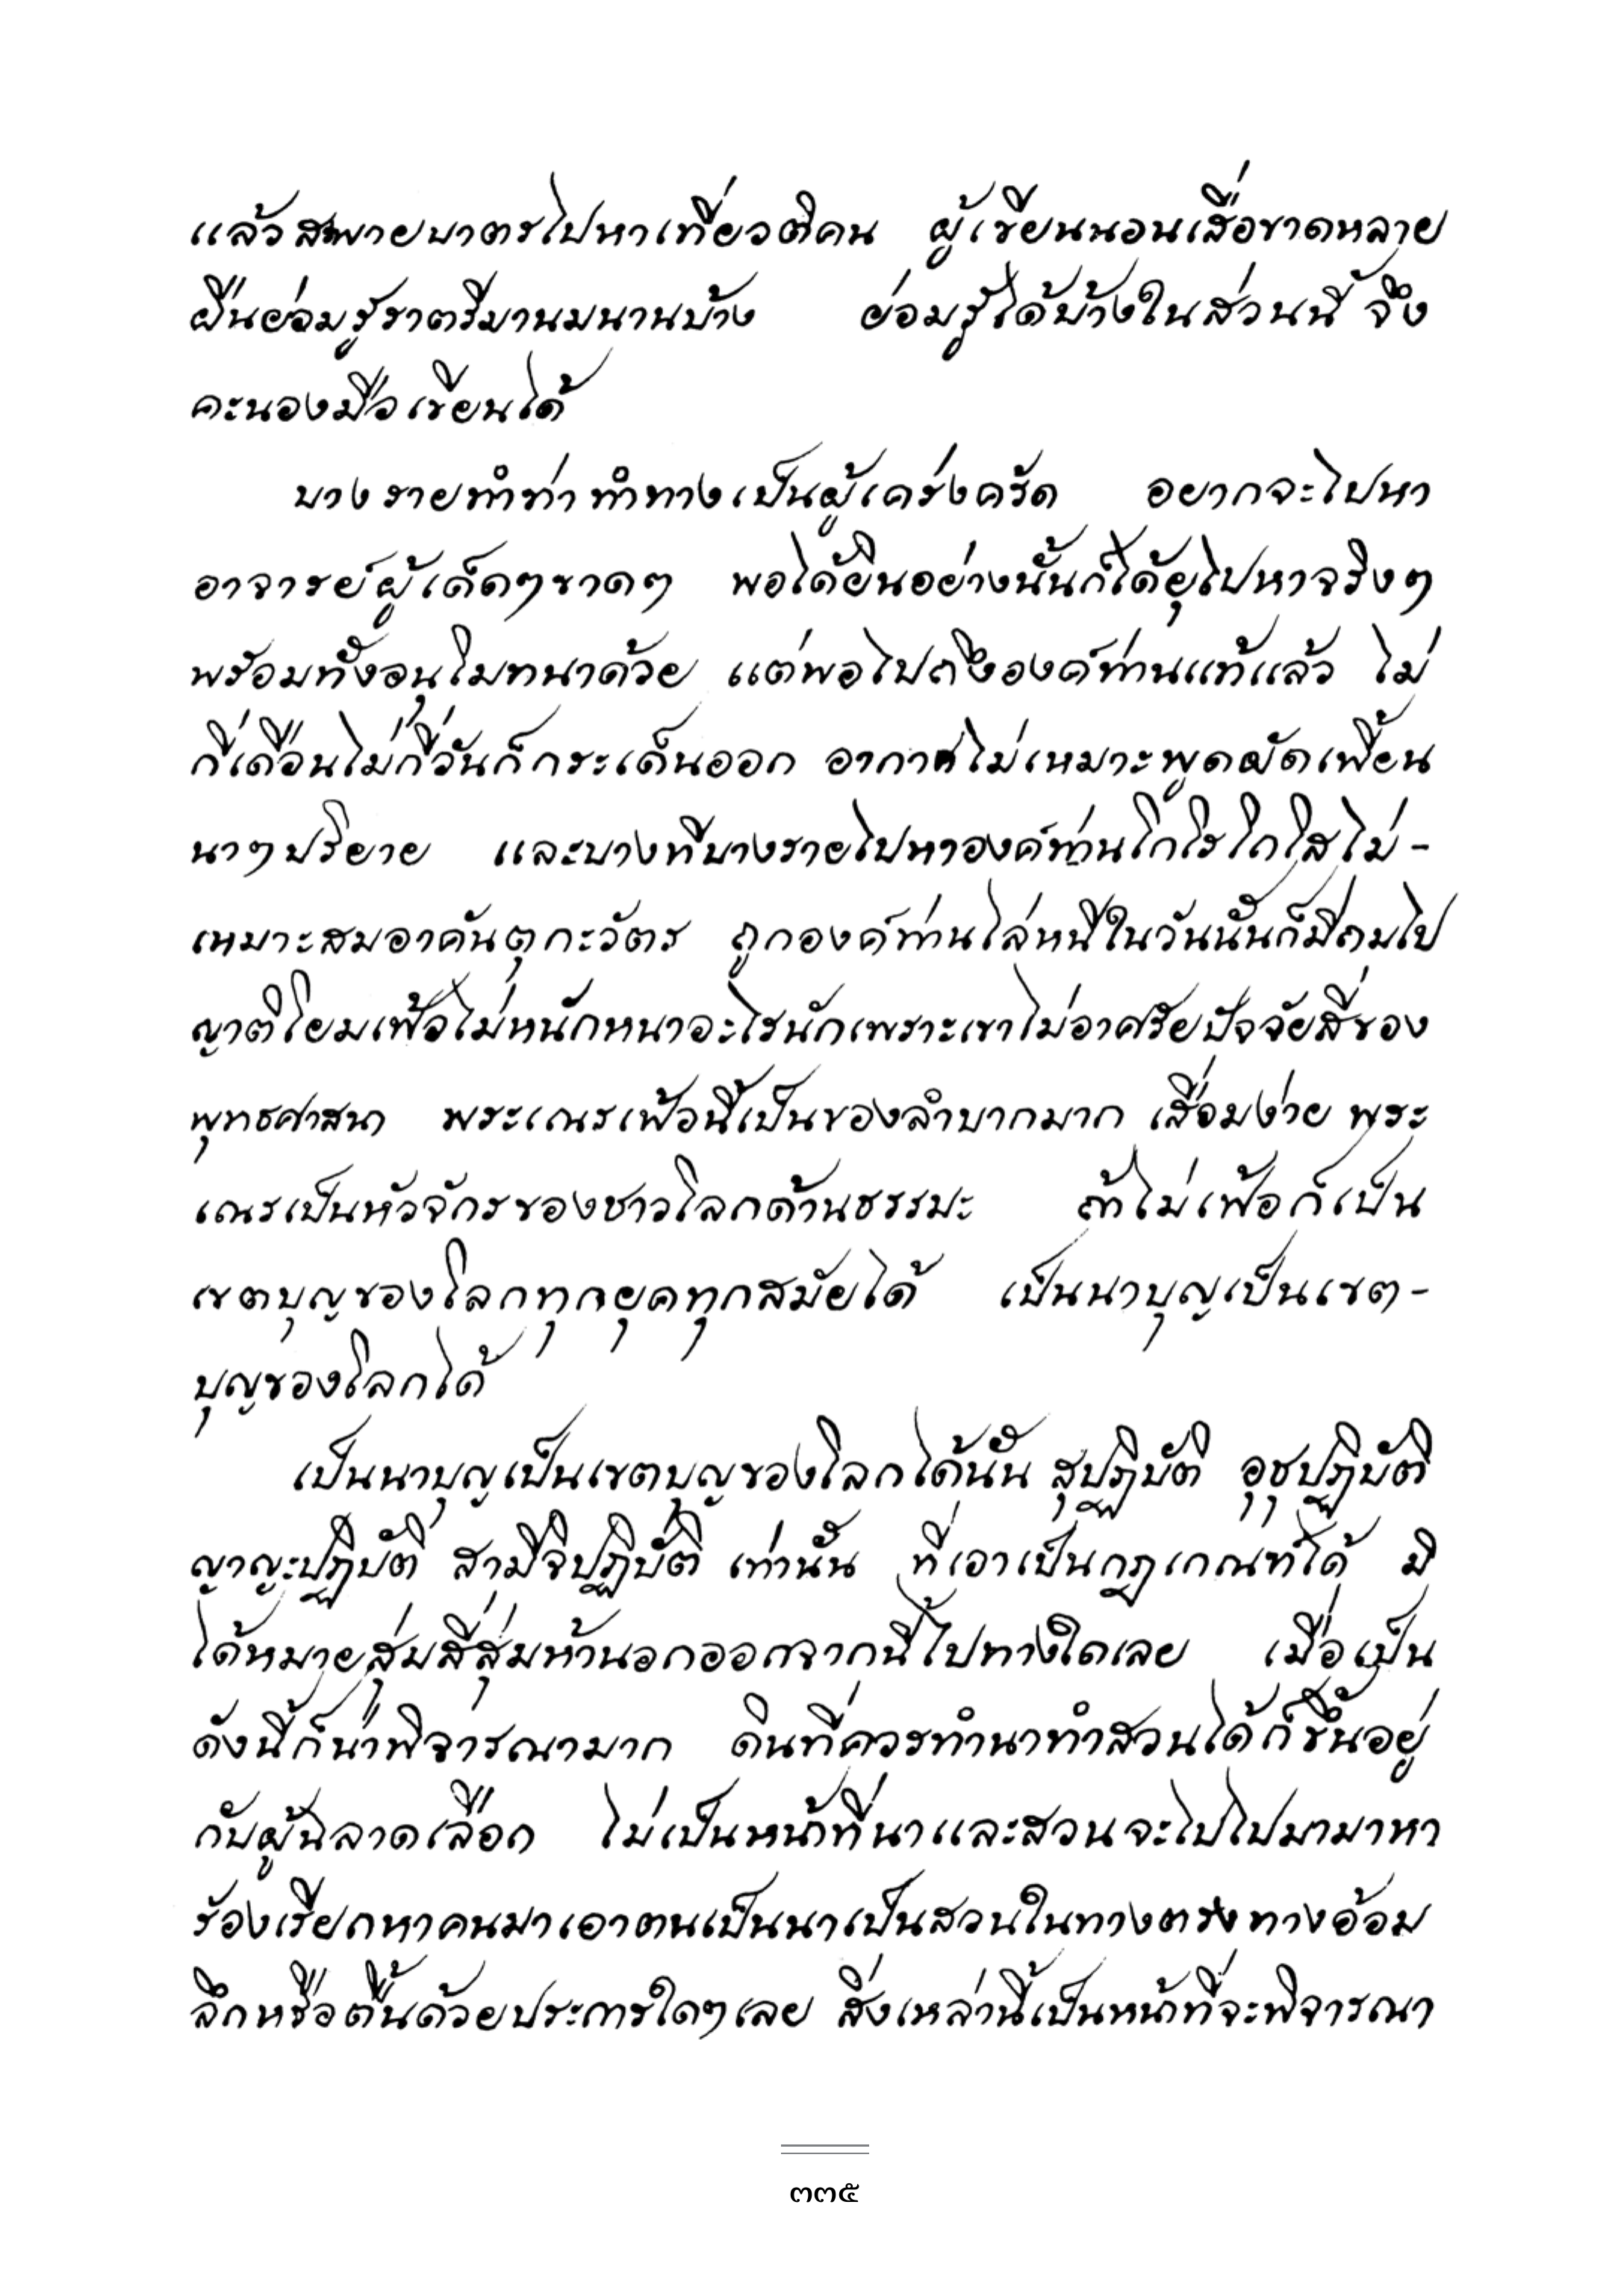 แล้วสพายบาตรไปหาเที่ยวติคน ผู้เขียนนอนเสื่อขาดหลาย
ผืนย่อมรู้ราตรีมานมนานบ้าง ย่อมรู้ได้บ้างในส่วนนี้ จึง
คะนองมือเขียนได้
บางรายทำท่าทำทางเป็นผู้เคร่งครัด อยากจะไปหา
อาจารย์ผู้เด็ดๆขาดๆ พอได้ยินอย่างนั้นก็ได้ยุไปหาจริงๆ
พร้อมทั้งอนุโมทนาด้วย แต่พอไปถึงองค์ท่านแท้แล้ว ไม่
กี่เดือนไม่กี่วันก็กระเด็นออก อากาศไม่เหมาะพูดผัดเพี้ยน
นาๆปริยาย และบางทีบางรายไปหาองค์ท่านโกโรโกโสไม่-
เหมาะสมอาคันตุกะวัตร ถูกองค์ท่านไล่หนีในวันนั้นก็มีถมไป
ญาติโยมเฟ้อไม่หนักหนาอะไรนักเพราะเขาไม่อาศรัยปัจจัยสี่ของ
พุทธศาสนา พระเณรเฟ้อนี้เป็นของลำบากมาก เสื่อมง่าย พระ
เณรเป็นหัวจักรของชาวโลกด้านธรรมะ ถ้าไม่เฟ้อก็เป็น
เขตบุญของโลกทุกยุคทุกสมัยได้ เป็นนาบุญเป็นเขต-
บุญของโลกได้
เป็นนาบุญเป็นเขตบุญของโลกได้นั้น สุปฏิบัติ อุชุปฏิบัติ
ญาญะปฏิบัติ สามีจิปฏิบัติ เท่านั้น ที่เอาเป็นกฎเกณฑ์ได้ มิ
ได้หมายสุ่มสี่สุ่มห้านอกออกจากนี้ไปทางใดเลย เมื่อเป็น
ดังนี้ก็น่าพิจารณามาก ดินที่ควรทำนาทำสวนได้ก็ขึ้นอยู่
กับผู้ฉลาดเลือก ไม่เป็นหน้าที่นาและสวนจะไปไปมามาหา
ร้องเรียกหาคนมาเอาตนเป็นนาเป็นสวนในทางตรงทางอ้อม
ลึกหรือตื้นด้วยประการใดๆเลย สิ่งเหล่านี้เป็นหน้าที่จะพิจารณา
๓๓๕